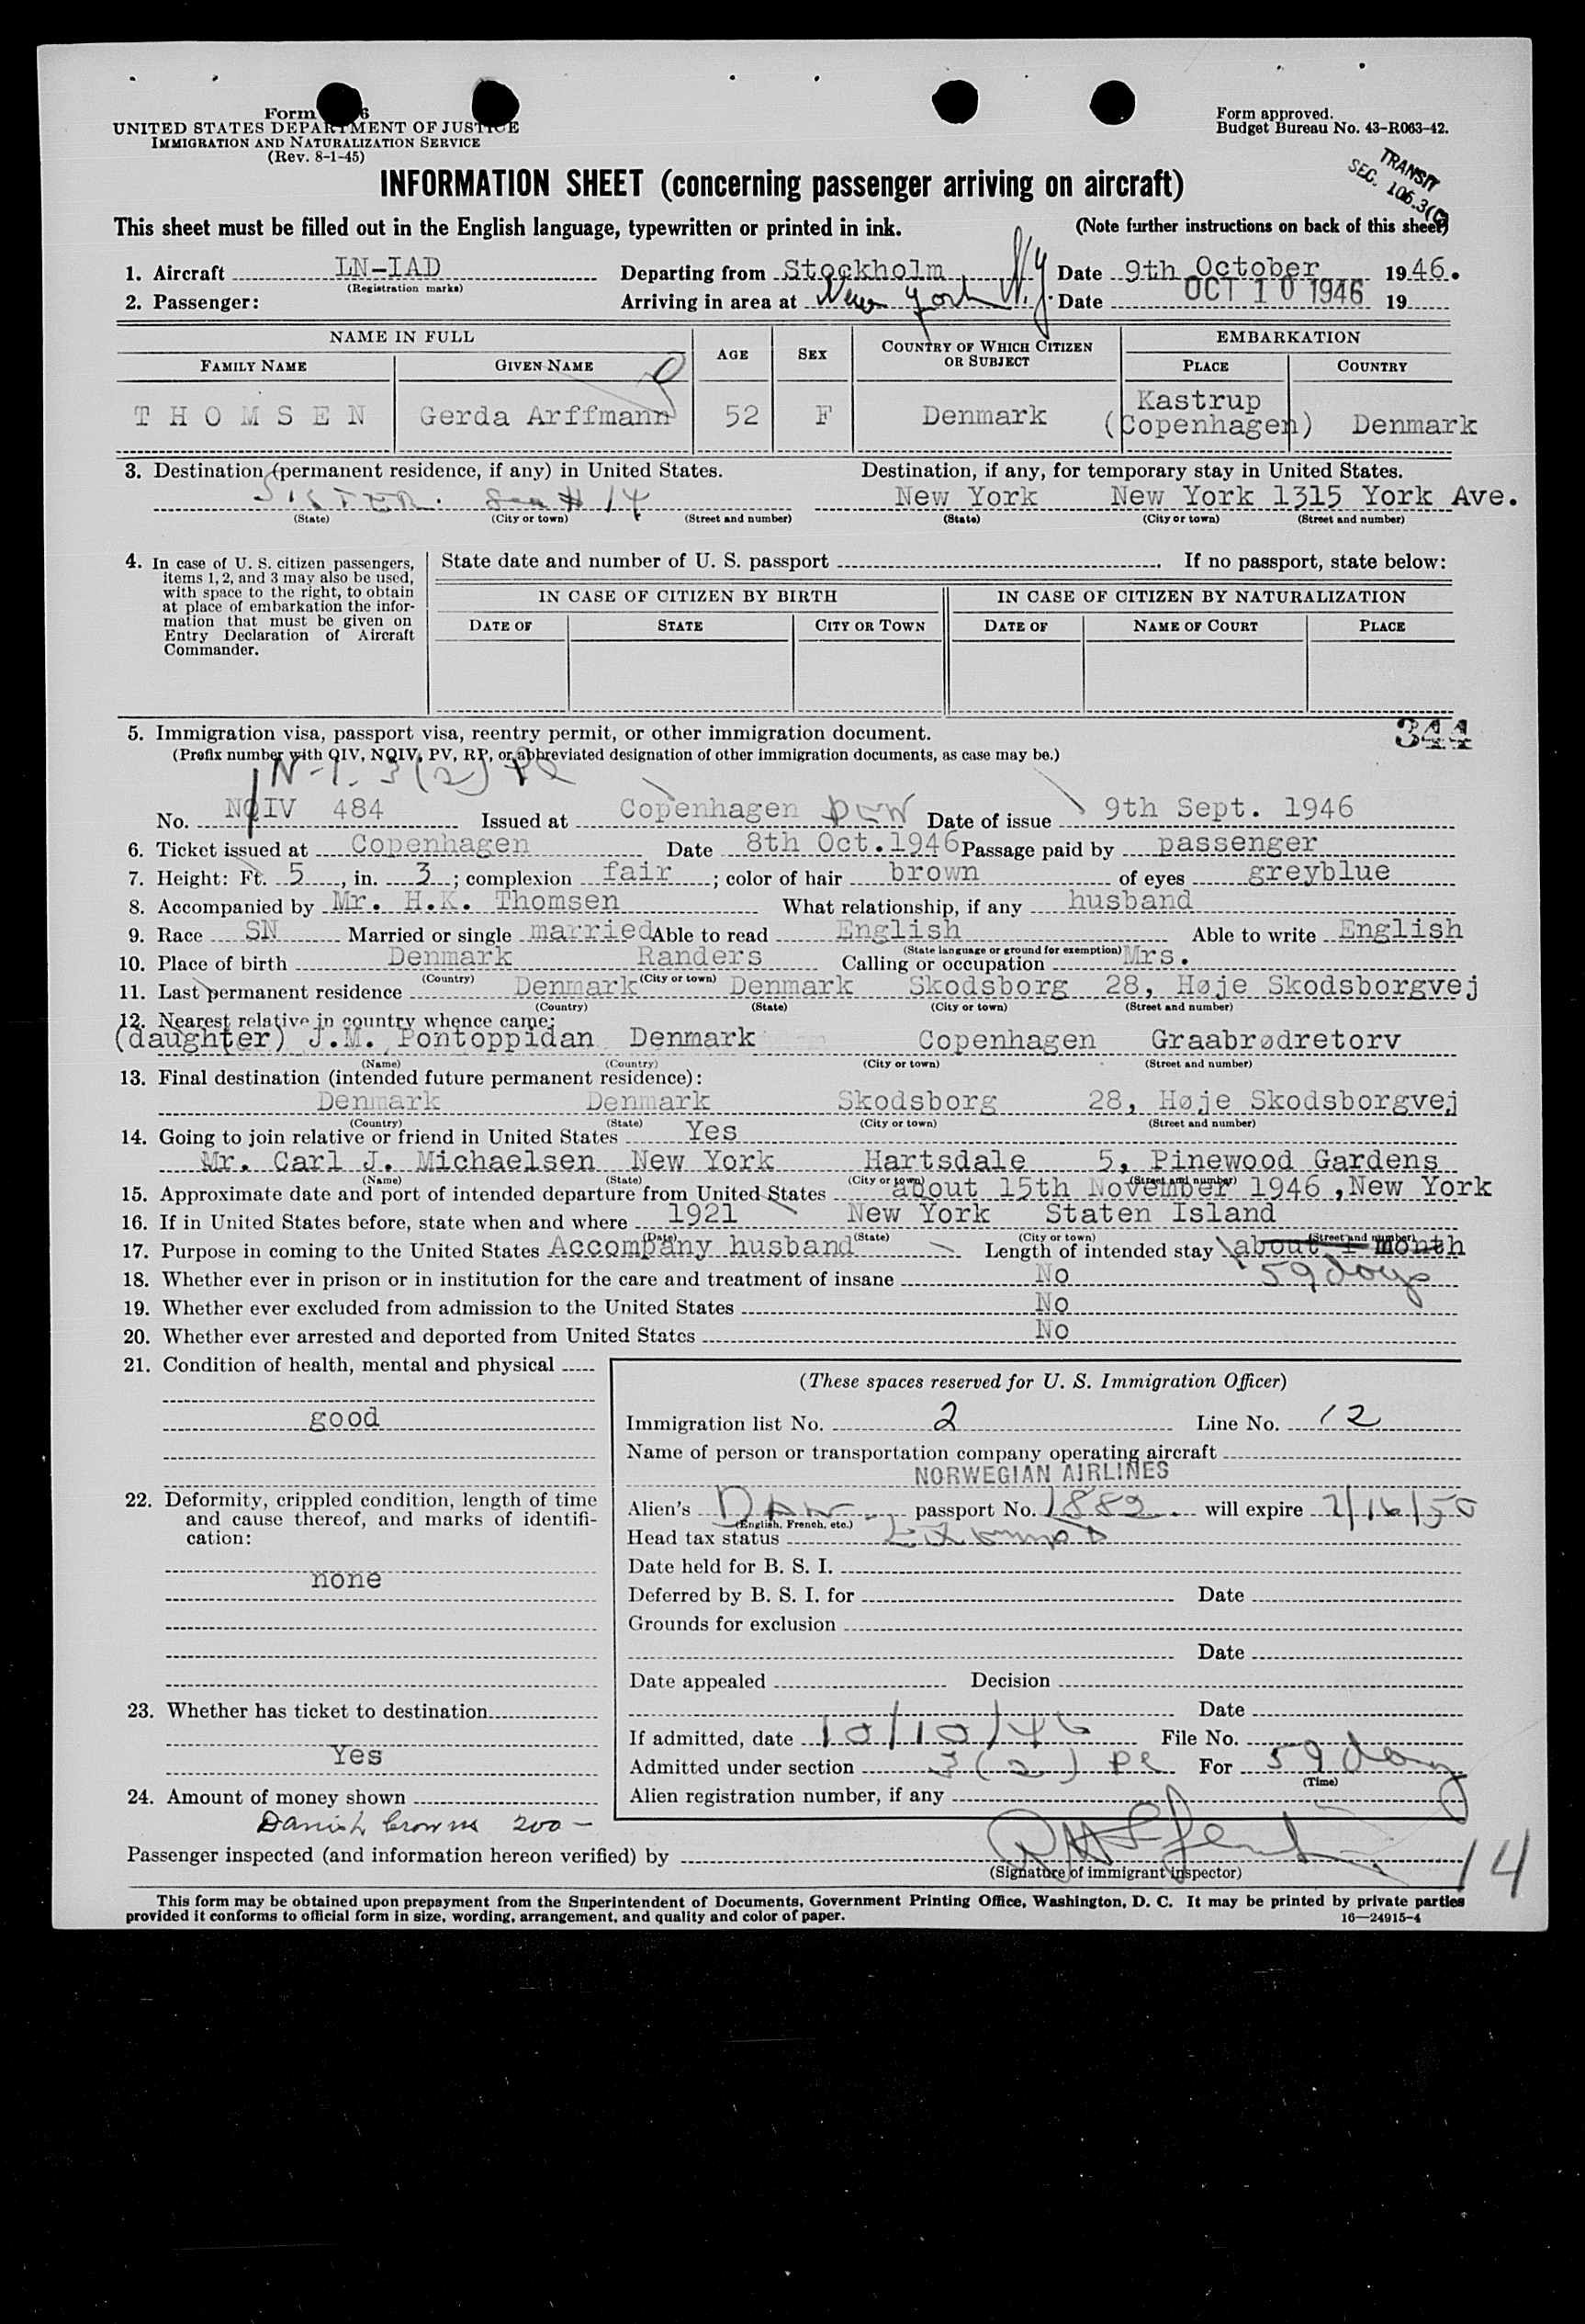 Form 6
UNITED STATES DEPARTMENT OF JUSTICE
IMMIGRATION AND NATURALIZATION SERVICE
(Rev. 8-1-45)
Form approved.
Budget Bureau No. 43-R063-42.
TRANSIT
SEC. 106.3(
INFORMATION SHEET (concerning passenger arriving on aircraft)
This sheet must be filled out in the English language, typewritten or printed in ink. (Note further instructions on back of this sheet)
1. Aircraft LN-IAD Departing from Stockholm Date 9th October 1946.
(Registration marks)
2. Passenger: Arriving in area at New York N.Y. Date OCT 10 1946 19
NAME IN FULL AGE SEX COUNTRY OF WHICH CITIZEN OR SUBJECT EMBARKATION
FAMILY NAME GIVEN NAME PLACE COUNTRY
THOMSEN Gerda Arffmann 52 F Denmark Kastrup (Copenhagen) Denmark
3. Destination (permanent residence, if any) in United States. Destination, if any, for temporary stay in United States.
SISTER. See # 14 New York New York 1315 York Ave.
(State) (City or town) (Street and number) (State) (City or town) (Street and number)
4. In case of U. S. citizen passengers, items 1, 2, and 3 may also be used, with space to the right, to obtain at place of embarkation the information that must be given on Entry Declaration of Aircraft Commander.
State date and number of U. S. passport If no passport, state below:
IN CASE OF CITIZEN BY BIRTH IN CASE OF CITIZEN BY NATURALIZATION
DATE OF STATE CITY OR TOWN DATE OF NAME OF COURT PLACE
5. Immigration visa, passport visa, reentry permit, or other immigration document. 344
(Prefix number with QIV, NQIV, PV, RP, or abbreviated designation of other immigration documents, as case may be.)
N-1. 3(2) PL
No. NQIV 484 Issued at Copenhagen DEN Date of issue 9th Sept. 1946
6. Ticket issued at Copenhagen Date 8th Oct.1946 Passage paid by passenger
7. Height: Ft. 5, in. 3; complexion fair; color of hair brown of eyes greyblue
8. Accompanied by Mr. H.K. Thomsen What relationship, if any husband
9. Race SN Married or single married Able to read English Able to write English
(State language or ground for exemption)
10. Place of birth Denmark Randers Calling or occupation Mrs.
(Country) (City or town)
11. Last permanent residence Denmark Denmark Skodsborg 28, Høje Skodsborgvej
(Country) (State) (City or town) (Street and number)
12. Nearest relative in country whence came:
(daughter) J.M. Pontoppidan Denmark Copenhagen Graabrødretorv
(Name) (Country) (City or town) (Street and number)
13. Final destination (intended future permanent residence):
Denmark Denmark Skodsborg 28, Høje Skodsborgvej
(Country) (State) (City or town) (Street and number)
14. Going to join relative or friend in United States Yes
Mr. Carl J. Michaelsen New York Hartsdale 5, Pinewood Gardens
(Name) (State) (City or town) (Street and number)
15. Approximate date and port of intended departure from United States about 15th November 1946, New York
16. If in United States before, state when and where 1921 New York Staten Island
(Date) (State) (City or town) (Street and number)
17. Purpose in coming to the United States Accompany husband Length of intended stay about 1 month
59 days
18. Whether ever in prison or in institution for the care and treatment of insane No
19. Whether ever excluded from admission to the United States No
20. Whether ever arrested and deported from United States No
21. Condition of health, mental and physical
good
22. Deformity, crippled condition, length of time and cause thereof, and marks of identification:
none
23. Whether has ticket to destination
Yes
24. Amount of money shown
Danish Crowns 200 -
(These spaces reserved for U. S. Immigration Officer)
Immigration list No. 2 Line No. 12
Name of person or transportation company operating aircraft
NORWEGIAN AIRLINES
Alien's passport No. 1882 will expire 2/16/50
(English, French, etc.)
Head tax status
Date held for B. S. I.
Deferred by B. S. I. for Date
Grounds for exclusion
Date
Date appealed Decision
Date
If admitted, date 10/10/46 File No.
Admitted under section 3(2) PL For 59 days
(Time)
Alien registration number, if any
Passenger inspected (and information hereon verified) by
(Signature of immigrant inspector)
14
This form may be obtained upon prepayment from the Superintendent of Documents, Government Printing Office, Washington, D. C. It may be printed by private parties
provided it conforms to official form in size, wording, arrangement, and quality and color of paper. 16—24915-4